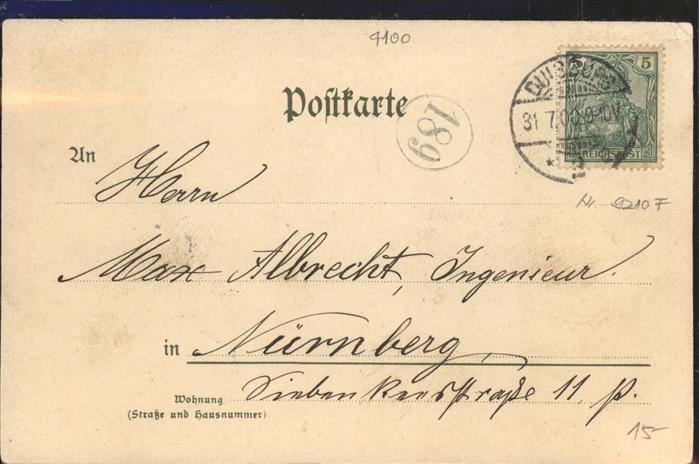 4100
Postkarte
189
5
REICHSPOST
DUISBURG
31 7 00 9-10V
An
Herrn
Nr. 9210 F
Max Albrecht, Ingenieur.
in Nürnberg,
Wohnung
(Straße und Hausnummer)
Siebenkeesstraße 11, p.
15-